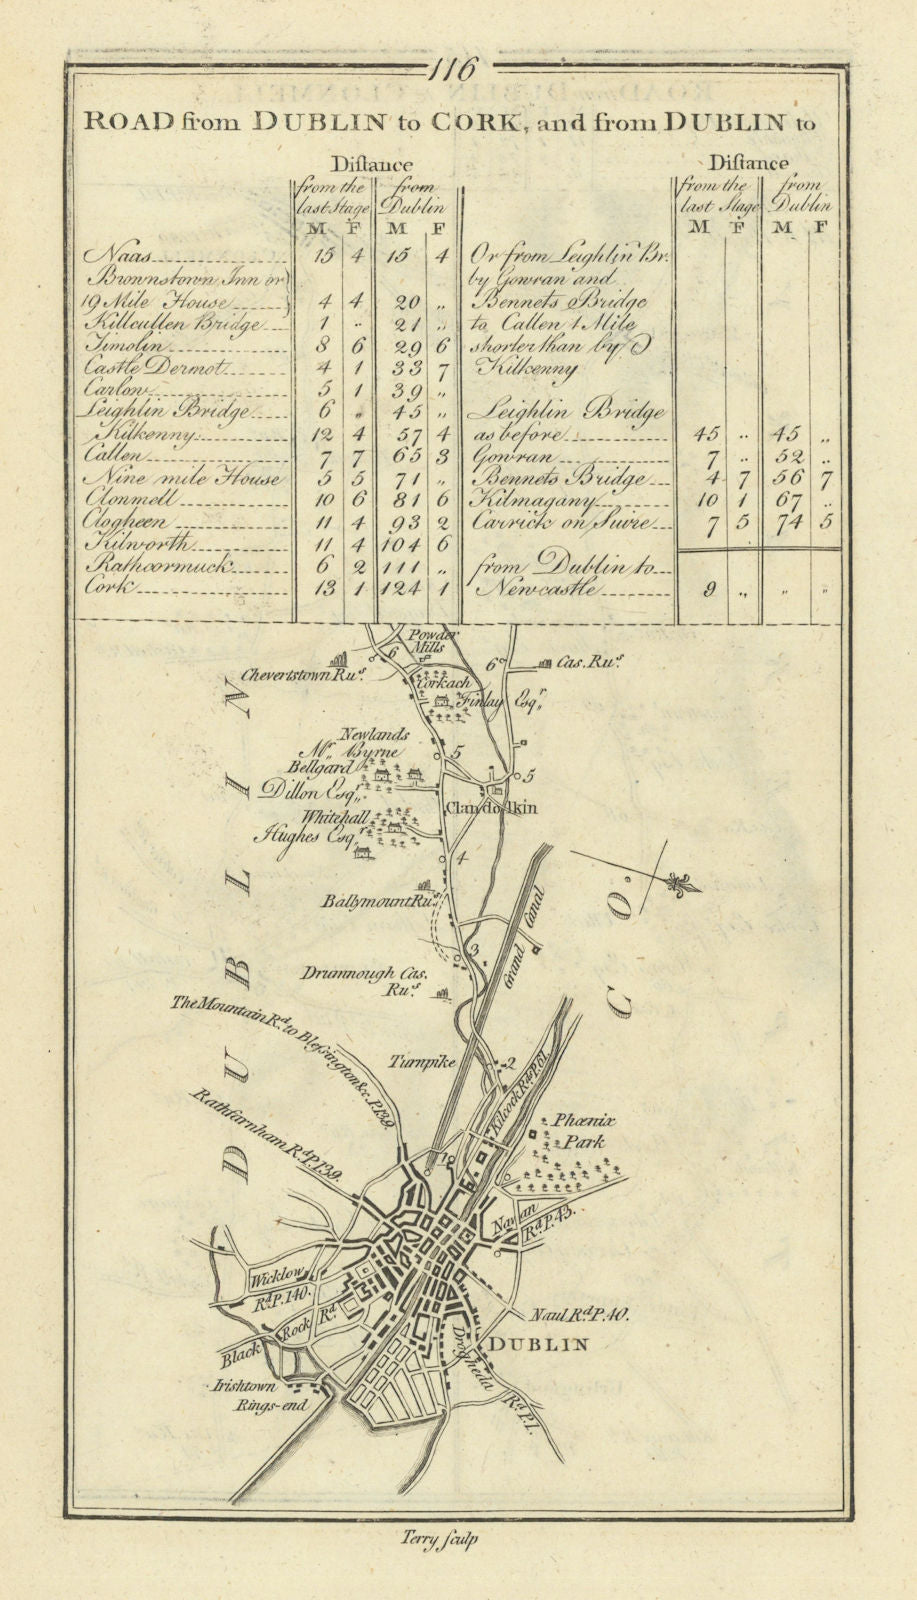 116
ROAD from DUBLIN to CORK, and from DUBLIN to
Distance
from the last Stage
from Dublin
M F M F
Naas 15 4 15 4
Brownstown Inn or
19 Mile House 4 4 20 „
Killcullen Bridge 1 .. 21 „
Timolin 8 6 29 6
Castle Dermot 4 1 33 7
Carlow 5 1 39 „
Leighlin Bridge 6 „ 45 „
Kilkenny 12 4 57 4
Callen 7 7 65 3
Nine mile House 5 5 71 „
Clonmell 10 6 81 6
Clogheen 11 4 93 2
Kilworth 11 4 104 6
Rathcormuck 6 2 111 „
Cork 13 1 124 1
Distance
from the last Stage
from Dublin
M F M F
Or from Leighlin Br.
by Gowran and
Bennets Bridge
to Callen 1 Mile
shorter than by
Kilkenny
Leighlin Bridge
as before 45 .. 45 „
Gowran 7 .. 52 ..
Bennets Bridge 4 7 56 7
Kilmagany 10 1 67 ..
Carrick on Suire 7 5 74 5
from Dublin to
Newcastle 9 „ „ „
Powder
Mills
6
6
Cas. Ru.s
Chevertstown Ru.s
Corkach
Finlay Esq.r
Newlands
Mr. Byrne
5
Bellgard
5
Dillon Esq.r
Clandolkin
Whitehall
Hughes Esq.r
4
Ballymount Ru.s
Grand Canal
CO.
DUBLIN
3
Drumnough Cas.
Ru.s
The Mountain R.d to Blessington &c P.139.
Turnpike
2
Kilcock R.d P.61.
Rathfarnham R.d P.139.
Phœnix
Park
1
Navan
R.d P.43.
Wicklow
R.d P.140.
Naul R.d P.40.
Black Rock R.d
DUBLIN
Drogheda R.d P.1.
Irishtown
Rings-end
Terry sculp